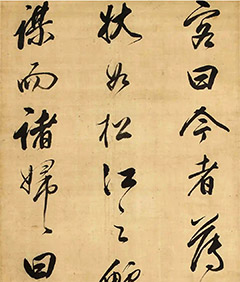 客曰今者薄
狀如松江之鱸
謀而諸婦〻曰